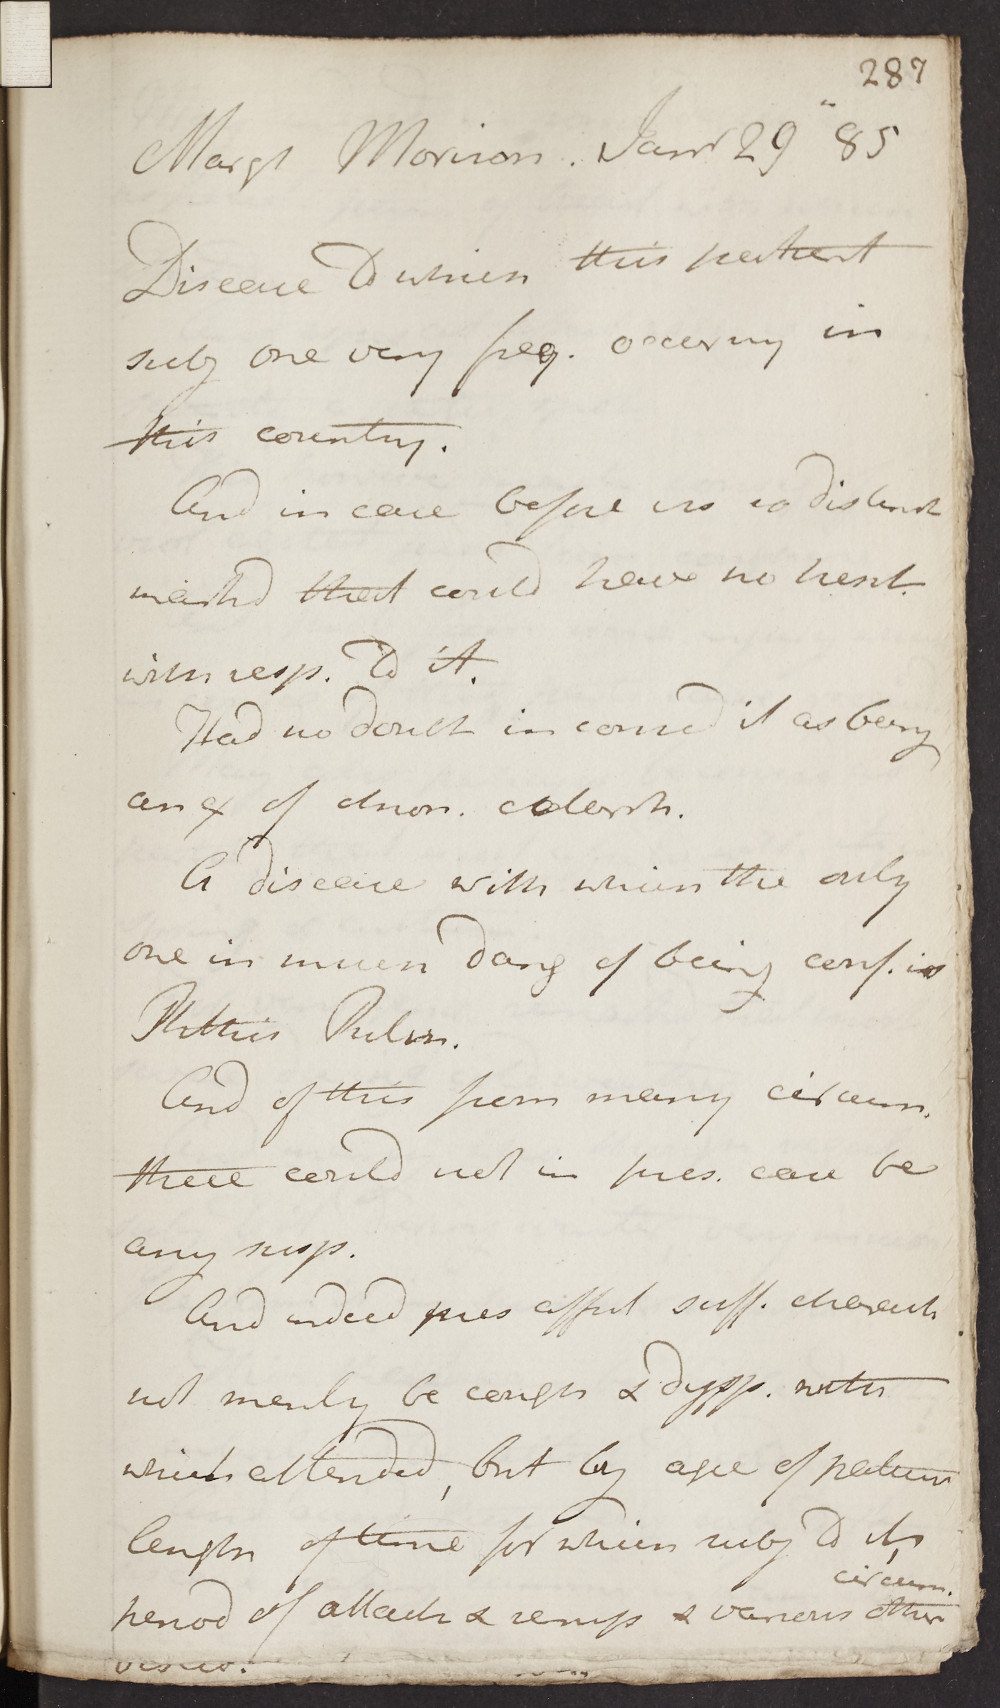 287
Margt Morison. Janr 29 " 85
Disease to which this patient
subj one very freq. occuring in
this country.
And in case before us so distinct
markd that could have no hesit.
with resp. to it.
Had no doubt in consid it as being
an ex of chron. catarrh.
A disease with which the only
one in much dang of being conf. is
Phthis Pulm.
And of this from many circum.
there could not in pres. case be
any susp.
And indeed pres afford suff. charact
not merly be cough & dysp. with
which attended, but by age of patient
length of time for which subj to it,
period of attack & remiss & various other circum.
besides.